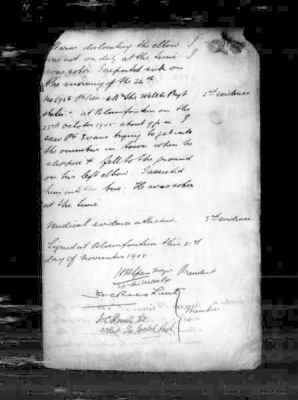 dislocating the elbow I
was not on duty at the time I
was sober I reported sick on
the morning of the 24th
4th the Welsh Regt 2nd evidence
states - at Bloemfontein on the
23rd October 1905 about 9 p.m. I
saw Pte Evans trying to get into
the omnibus in town when he
slipped & fell to the ground
on his left elbow I assisted
him into the bus. He was sober
at the time
Medical evidence attached 3rd evidence
Signed at Bloemfontein this 21st
day of November 1905
Major President
Lieut
Members
Welsh Regt